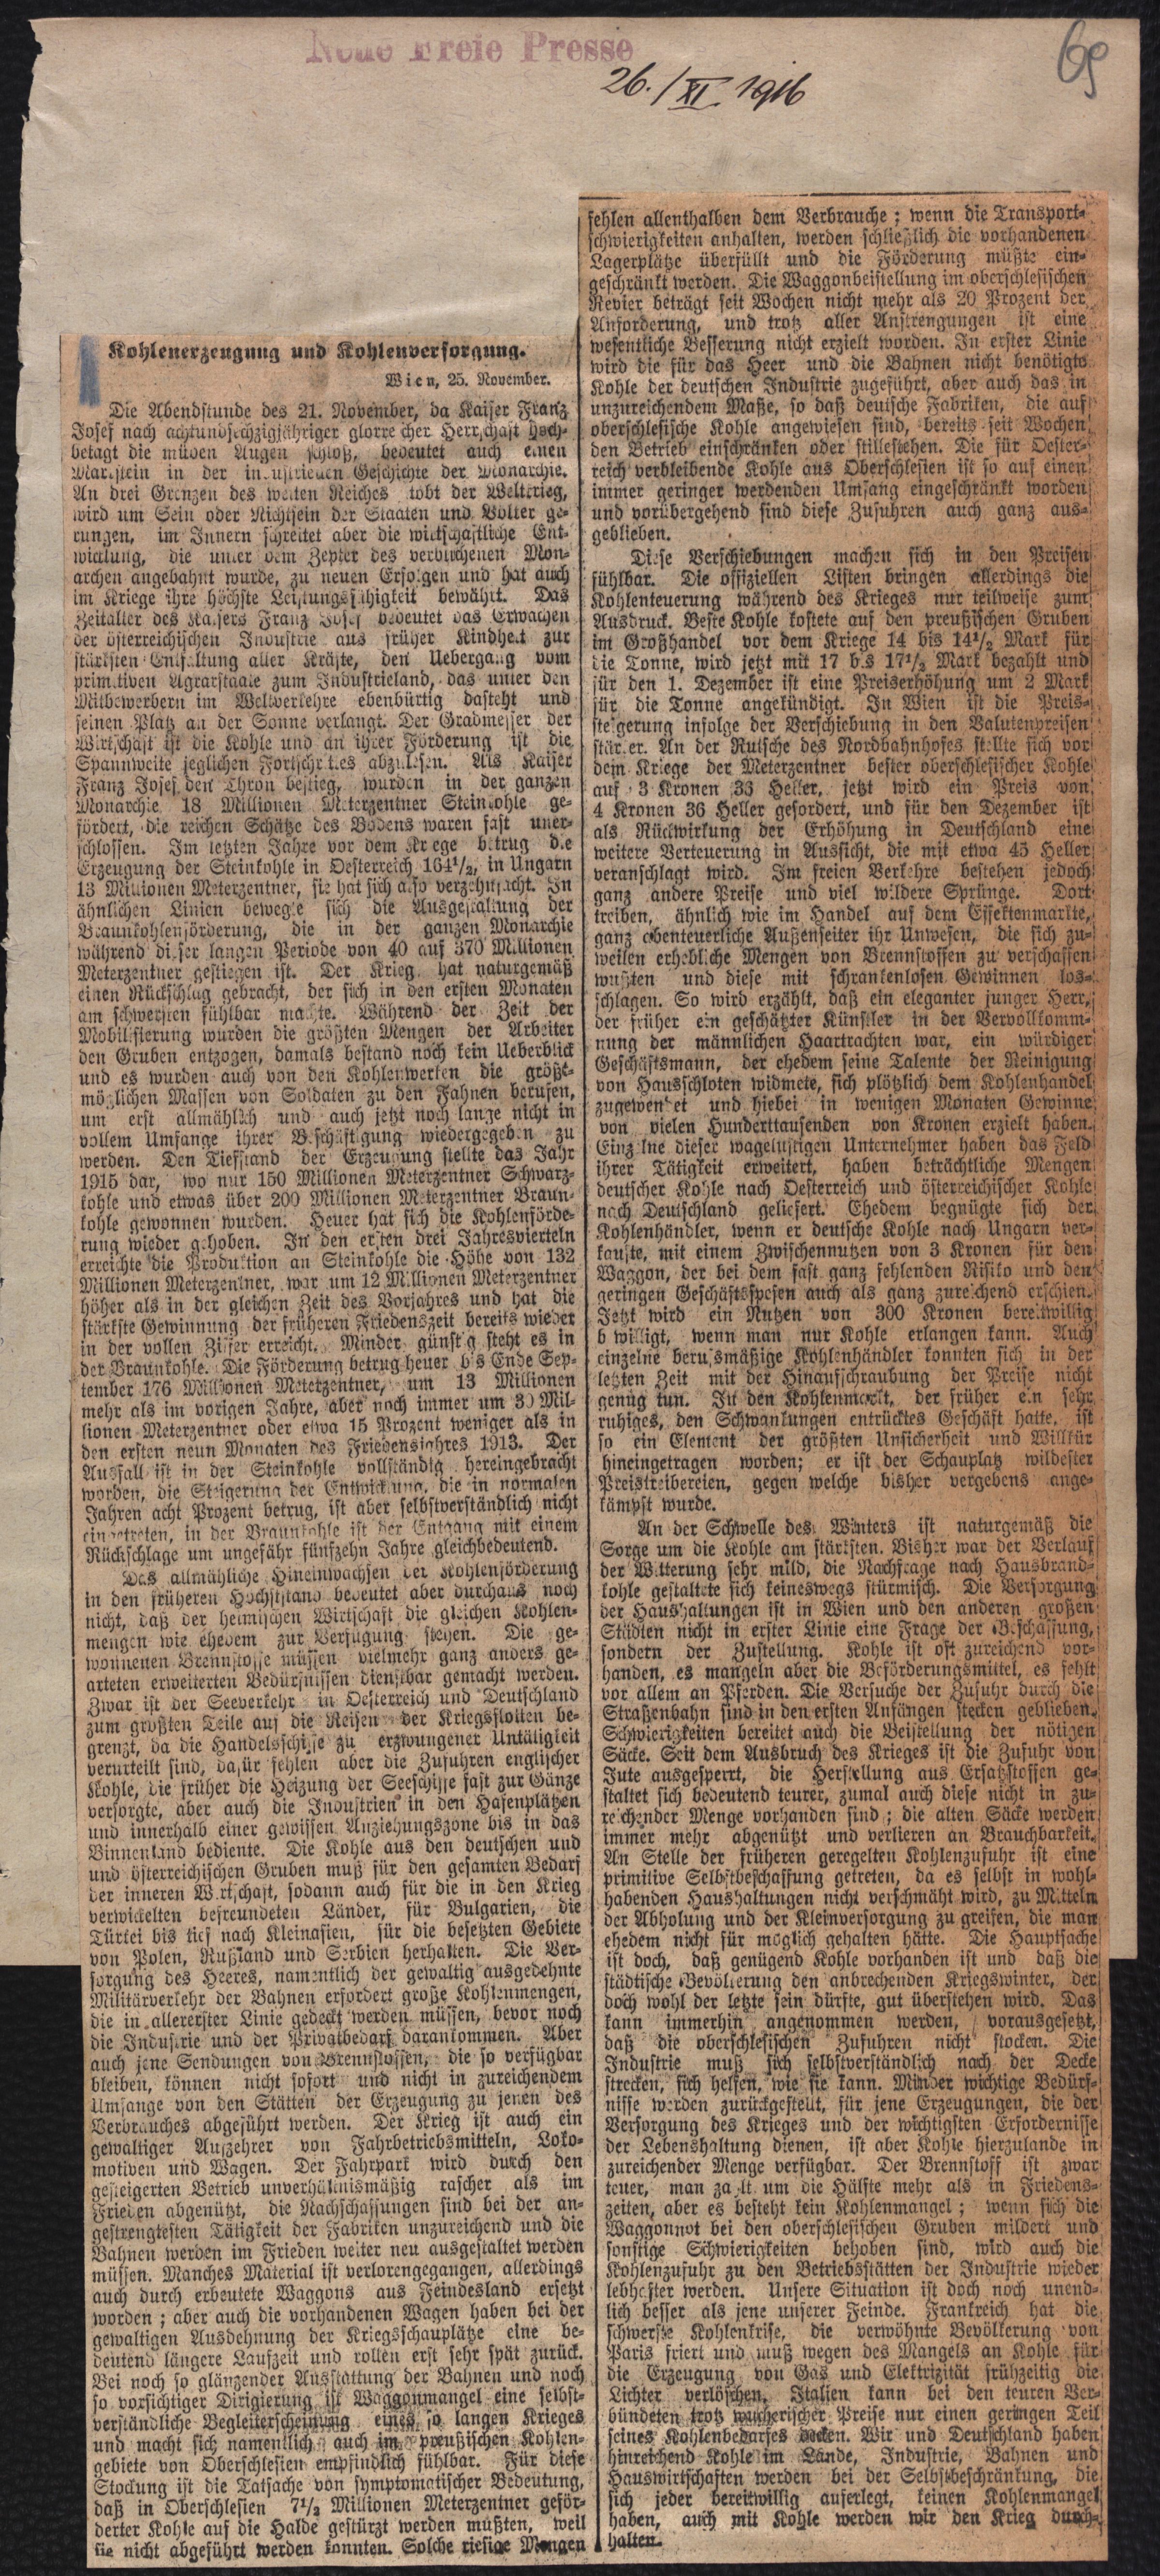 Neue Freie Presse
26./XI 1916
69
Kohlenerzeugung und Kohlenversorgung.
Wien, 25. November.
Die Abendstunde des 21. November, da Kaiser Franz
Josef nach achtundsechzigjähriger glorreicher Herrschaft hoch-
betagt die müden Augen schloß, bedeutet auch einen
Markstein in der industriellen Geschichte der Monarchie.
An drei Grenzen des weiten Reiches tobt der Weltkrieg,
wird um Sein oder Nichtsein der Staaten und Völker ge-
rungen, im Innern schreitet aber die wirtschaftliche Ent-
wicklung, die unter dem Zepter des verblichenen Mon-
archen angebahnt wurde, zu neuen Erfolgen und hat auch
im Kriege ihre höchste Leistungsfähigkeit bewährt. Das
Zeitalter des Kaisers Franz Josef bedeutet das Erwachen
der österreichischen Industrie aus früher Kindheit zur
stärksten Entfaltung aller Kräfte, den Uebergang vom
primitiven Agrarstaate zum Industrieland, das unter den
Mitbewerbern im Weltverkehre ebenbürtig dasteht und
seinen Platz an der Sonne verlangt. Der Gradmesser der
Wirtschaft ist die Kohle und an ihrer Förderung ist die
Spannweite jeglichen Fortschrittes abzulesen. Als Kaiser
Franz Josef den Thron bestieg, wurden in der ganzen
Monarchie 18 Millionen Meterzentner Steinkohle ge-
fördert, die reichen Schätze des Bodens waren fast uner-
schlossen. Im letzten Jahre vor dem Kriege betrug die
Erzeugung der Steinkohle in Oesterreich 164½, in Ungarn
13 Millionen Meterzentner, sie hat sich also verzehnfacht. In
ähnlichen Linien bewegte sich die Ausgestaltung der
Braunkohlenförderung, die in der ganzen Monarchie
während dieser langen Periode von 40 auf 370 Millionen
Meterzentner gestiegen ist. Der Krieg hat naturgemäß
einen Rückschlag gebracht, der sich in den ersten Monaten
am schwersten fühlbar machte. Während der Zeit der
Mobilisierung wurden die größten Mengen der Arbeiter
den Gruben entzogen, damals bestand noch kein Ueberblick
und es wurden auch von den Kohlenwerken die größt-
möglichen Massen von Soldaten zu den Fahnen berufen,
um erst allmählich und auch jetzt noch lange nicht in
vollem Umfange ihrer Beschäftigung wiedergegeben zu
werden. Den Tiefstand der Erzeugung stellte das Jahr
1915 dar, wo nur 150 Millionen Meterzentner Schwarz-
kohle und etwas über 200 Millionen Meterzentner Braun-
kohle gewonnen wurden. Heuer hat sich die Kohlenförde-
rung wieder gehoben. In den ersten drei Jahresvierteln
erreichte die Produktion an Steinkohle die Höhe von 132
Millionen Meterzentner, war um 12 Millionen Meterzentner
höher als in der gleichen Zeit des Vorjahres und hat die
stärkste Gewinnung der früheren Friedenszeit bereits wieder
in der vollen Ziffer erreicht. Minder günstig steht es in
der Braunkohle. Die Förderung betrug heuer bis Ende Sep-
tember 176 Millionen Meterzentner, um 13 Millionen
mehr als im vorigen Jahre, aber noch immer um 30 Mil-
lionen Meterzentner oder etwa 15 Prozent weniger als in
den ersten neun Monaten des Friedensjahres 1913. Der
Ausfall ist in der Steinkohle vollständig hereingebracht
worden, die Steigerung der Entwicklung, die in normalen
Jahren acht Prozent betrug, ist aber selbstverständlich nicht
eingetreten, in der Braunkohle ist der Entgang mit einem
Rückschlage um ungefähr fünfzehn Jahre gleichbedeutend.
Das allmähliche Hineinwachsen der Kohlenförderung
in den früheren Höchststand bedeutet aber durchaus noch
nicht, daß der heimischen Wirtschaft die gleichen Kohlen-
mengen wie ehedem zur Verfügung stehen. Die ge-
wonnenen Brennstoffe müssen vielmehr ganz anders ge-
arteten erweiterten Bedürfnissen dienstbar gemacht werden.
Zwar ist der Seeverkehr in Oesterreich und Deutschland
zum größten Teile auf die Reisen der Kriegsflotten be-
grenzt, da die Handelsschiffe zu erzwungener Untätigkeit
verurteilt sind, dafür fehlen aber die Zufuhren englischer
Kohle, die früher die Heizung der Seeschiffe fast zur Gänze
versorgte, aber auch die Industrien in den Hafenplätzen
und innerhalb einer gewissen Anziehungszone bis in das
Binnenland bediente. Die Kohle aus den deutschen und
und österreichischen Gruben muß für den gesamten Bedarf
der inneren Wirtschaft, sodann auch für die in den Krieg
verwickelten befreundeten Länder, für Bulgarien, die
Türkei bis tief nach Kleinasien, für die besetzten Gebiete
von Polen, Rußland und Serbien herhalten. Die Ver-
sorgung des Heeres, namentlich der gewaltig ausgedehnte
Militärverkehr der Bahnen erfordert große Kohlenmengen,
die in allererster Linie gedeckt werden müssen, bevor noch
die Industrie und der Privatbedarf darankommen. Aber
auch jene Sendungen von Brennstoffen, die so verfügbar
bleiben, können nicht sofort und nicht in zureichendem
Umfange von den Stätten der Erzeugung zu jenen des
Verbrauches abgeführt werden. Der Krieg ist auch ein
gewaltiger Aufzehrer von Fahrbetriebsmitteln, Loko-
motiven und Wagen. Der Fahrpark wird durch den
gesteigerten Betrieb unverhältnismäßig rascher als im
Frieden abgenützt, die Nachschaffungen sind bei der an-
gestrengtesten Tätigkeit der Fabriken unzureichend und die
Bahnen werden im Frieden weiter neu ausgestaltet werden
müssen. Manches Material ist verlorengegangen, allerdings
auch durch erbeutete Waggons aus Feindesland ersetzt
worden; aber auch die vorhandenen Wagen haben bei der
gewaltigen Ausdehnung der Kriegsschauplätze eine be-
deutend längere Laufzeit und rollen erst sehr spät zurück.
Bei noch so glänzender Ausstattung der Bahnen und noch
so vorsichtiger Dirigierung ist Waggonmangel eine selbst-
verständliche Begleiterscheinung eines so langen Krieges
und macht sich namentlich auch im preußischen Kohlen-
gebiete von Oberschlesien empfindlich fühlbar. Für diese
Stockung ist die Tatsache von symptomatischer Bedeutung,
daß in Oberschlesien 7½ Millionen Meterzentner geför-
derter Kohle auf die Halde gestürzt werden mußten, weil
sie nicht abgeführt werden konnten. Solche riesige Mengen
fehlen allenthalben dem Verbrauche; wenn die Transport-
schwierigkeiten anhalten, werden schließlich die vorhandenen
Lagerplätze überfüllt und die Förderung müßte ein-
geschränkt werden. Die Waggonbeistellung im oberschlesischen
Revier beträgt seit Wochen nicht mehr als 20 Prozent der
Anforderung, und trotz aller Anstrengungen ist eine
wesentliche Besserung nicht erzielt worden. In erster Linie
wird die für das Heer und die Bahnen nicht benötigte
Kohle der deutschen Industrie zugeführt, aber auch das in
unzureichendem Maße, so daß deutsche Fabriken, die auf
oberschlesische Kohle angewiesen sind, bereits seit Wochen
den Betrieb einschränken oder stillestehen. Die für Oester-
reich verbleibende Kohle aus Oberschlesien ist so auf einen
immer geringer werdenden Umfang eingeschränkt worden
und vorübergehend sind diese Zufuhren auch ganz aus-
geblieben.
Diese Verschiebungen machen sich in den Preisen
fühlbar. Die offiziellen Listen bringen allerdings die
Kohlenteuerung während des Krieges nur teilweise zum
Ausdruck. Beste Kohle kostete auf den preußischen Gruben
im Großhandel vor dem Kriege 14 bis 14½ Mark für
die Tonne, wird jetzt mit 17 bis 17½ Mark bezahlt und
für den 1. Dezember ist eine Preiserhöhung um 2 Mark
für die Tonne angekündigt. In Wien ist die Preis-
steigerung infolge der Verschiebung in den Valutenpreisen
stärker. An der Rutsche des Nordbahnhofes stellte sich vor
dem Kriege der Meterzentner bester oberschlesischer Kohle
auf 3 Kronen 33 Heller, jetzt wird ein Preis von
4 Kronen 36 Heller gefordert, und für den Dezember ist
als Rückwirkung der Erhöhung in Deutschland eine
weitere Verteuerung in Aussicht, die mit etwa 45 Heller
veranschlagt wird. Im freien Verkehre bestehen jedoch
ganz andere Preise und viel wildere Sprünge. Dort
treiben, ähnlich wie im Handel auf dem Effektenmarkte,
ganz abenteuerliche Außenseiter ihr Unwesen, die sich zu-
weilen erhebliche Mengen von Brennstoffen zu verschaffen
wußten und diese mit schrankenlosen Gewinnen los-
schlagen. So wird erzählt, daß ein eleganter junger Herr,
der früher ein geschätzter Künstler in der Vervollkomm-
nung der männlichen Haartrachten war, ein würdiger
Geschäftsmann, der ehedem seine Talente der Reinigung
von Hausschloten widmete, sich plötzlich dem Kohlenhandel
zugewendet und hiebei in wenigen Monaten Gewinne
von vielen Hunderttausenden von Kronen erzielt haben.
Einzelne dieser wagelustigen Unternehmer haben das Feld
ihrer Tätigkeit erweitert, haben beträchtliche Mengen
deutscher Kohle nach Oesterreich und österreichischer Kohle
nach Deutschland geliefert. Ehedem begnügte sich der
Kohlenhändler, wenn er deutsche Kohle nach Ungarn ver-
kaufte, mit einem Zwischennutzen von 3 Kronen für den
Waggon, der bei dem fast ganz fehlenden Risiko und den
geringen Geschäftsspesen auch als ganz zureichend erschien.
Jetzt wird ein Nutzen von 300 Kronen bereitwillig
bewilligt, wenn man nur Kohle erlangen kann. Auch
einzelne berufsmäßige Kohlenhändler konnten sich in der
letzten Zeit mit der Hinaufschraubung der Preise nicht
genug tun. In den Kohlenmarkt, der früher ein sehr
ruhiges, den Schwankungen entrücktes Geschäft hatte, ist
so ein Element der größten Unsicherheit und Willkür
hineingetragen worden; er ist der Schauplatz wildester
Preistreibereien, gegen welche bisher vergebens ange-
kämpft wurde.
An der Schwelle des Winters ist naturgemäß die
Sorge um die Kohle am stärksten. Bisher war der Verlauf
der Witterung sehr mild, die Nachfrage nach Hausbrand-
kohle gestaltete sich keineswegs stürmisch. Die Versorgung
der Haushaltungen ist in Wien und den anderen großen
Städten nicht in erster Linie eine Frage der Beschaffung,
sondern der Zustellung. Kohle ist oft zureichend vor-
handen, es mangeln aber die Beförderungsmittel, es fehlt
vor allem an Pferden. Die Versuche der Zufuhr durch die
Straßenbahn sind in den ersten Anfängen stecken geblieben.
Schwierigkeiten bereitet auch die Beistellung der nötigen
Säcke. Seit dem Ausbruch des Krieges ist die Zufuhr von
Jute ausgesperrt, die Herstellung aus Ersatzstoffen ge-
staltet sich bedeutend teurer, zumal auch diese nicht in zu-
reichender Menge vorhanden sind; die alten Säcke werden
immer mehr abgenützt und verlieren an Brauchbarkeit.
An Stelle der früheren geregelten Kohlenzufuhr ist eine
primitive Selbstbeschaffung getreten, da es selbst in wohl-
habenden Haushaltungen nicht verschmäht wird, zu Mitteln
der Abholung und der Kleinversorgung zu greifen, die man
ehedem nicht für möglich gehalten hätte. Die Hauptsache
ist doch, daß genügend Kohle vorhanden ist und daß die
städtische Bevölkerung den anbrechenden Kriegswinter, der
doch wohl der letzte sein dürfte, gut überstehen wird. Das
kann immerhin angenommen werden, vorausgesetzt,
daß die oberschlesischen Zufuhren nicht stocken. Die
Industrie muß sich selbstverständlich nach der Decke
strecken, sich helfen, wie sie kann. Minder wichtige Bedürf-
nisse werden zurückgestellt, für jene Erzeugungen, die der
Versorgung des Krieges und der wichtigsten Erfordernisse
der Lebenshaltung dienen, ist aber Kohle hierzulande in
zureichender Menge verfügbar. Der Brennstoff ist zwar
teuer, man zahlt um die Hälfte mehr als in Friedens-
zeiten, aber es besteht kein Kohlenmangel; wenn sich die
Waggonnot bei den oberschlesischen Gruben mildert und
sonstige Schwierigkeiten behoben sind, wird auch die
Kohlenzufuhr zu den Betriebsstätten der Industrie wieder
lebhafter werden. Unsere Situation ist doch noch unend-
lich besser als jene unserer Feinde. Frankreich hat die
schwerste Kohlenkrise, die verwöhnte Bevölkerung von
Paris friert und muß wegen des Mangels an Kohle für
die Erzeugung von Gas und Elektrizität frühzeitig die
Lichter verlöschen. Italien kann bei den teuren Ver-
bündeten trotz wucherischer Preise nur einen geringen Teil
seines Kohlenbedarfes decken. Wir und Deutschland haben
hinreichend Kohle im Lande, Industrie, Bahnen und
Hauswirtschaften werden bei der Selbstbeschränkung, die
sich jeder bereitwillig auferlegt, keinen Kohlenmangel
haben, auch mit Kohle werden wir den Krieg durch-
halten.